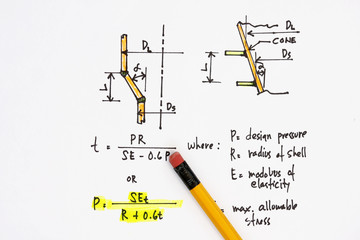 DL
α
L
DS
DL
CONE
DS
α
L
t = PR / SE - 0.6P where: P = design pressure
R = radius of shell
OR E = modulus of
elasticity
P = SEt / R + 0.6t
= max. allowable
stress